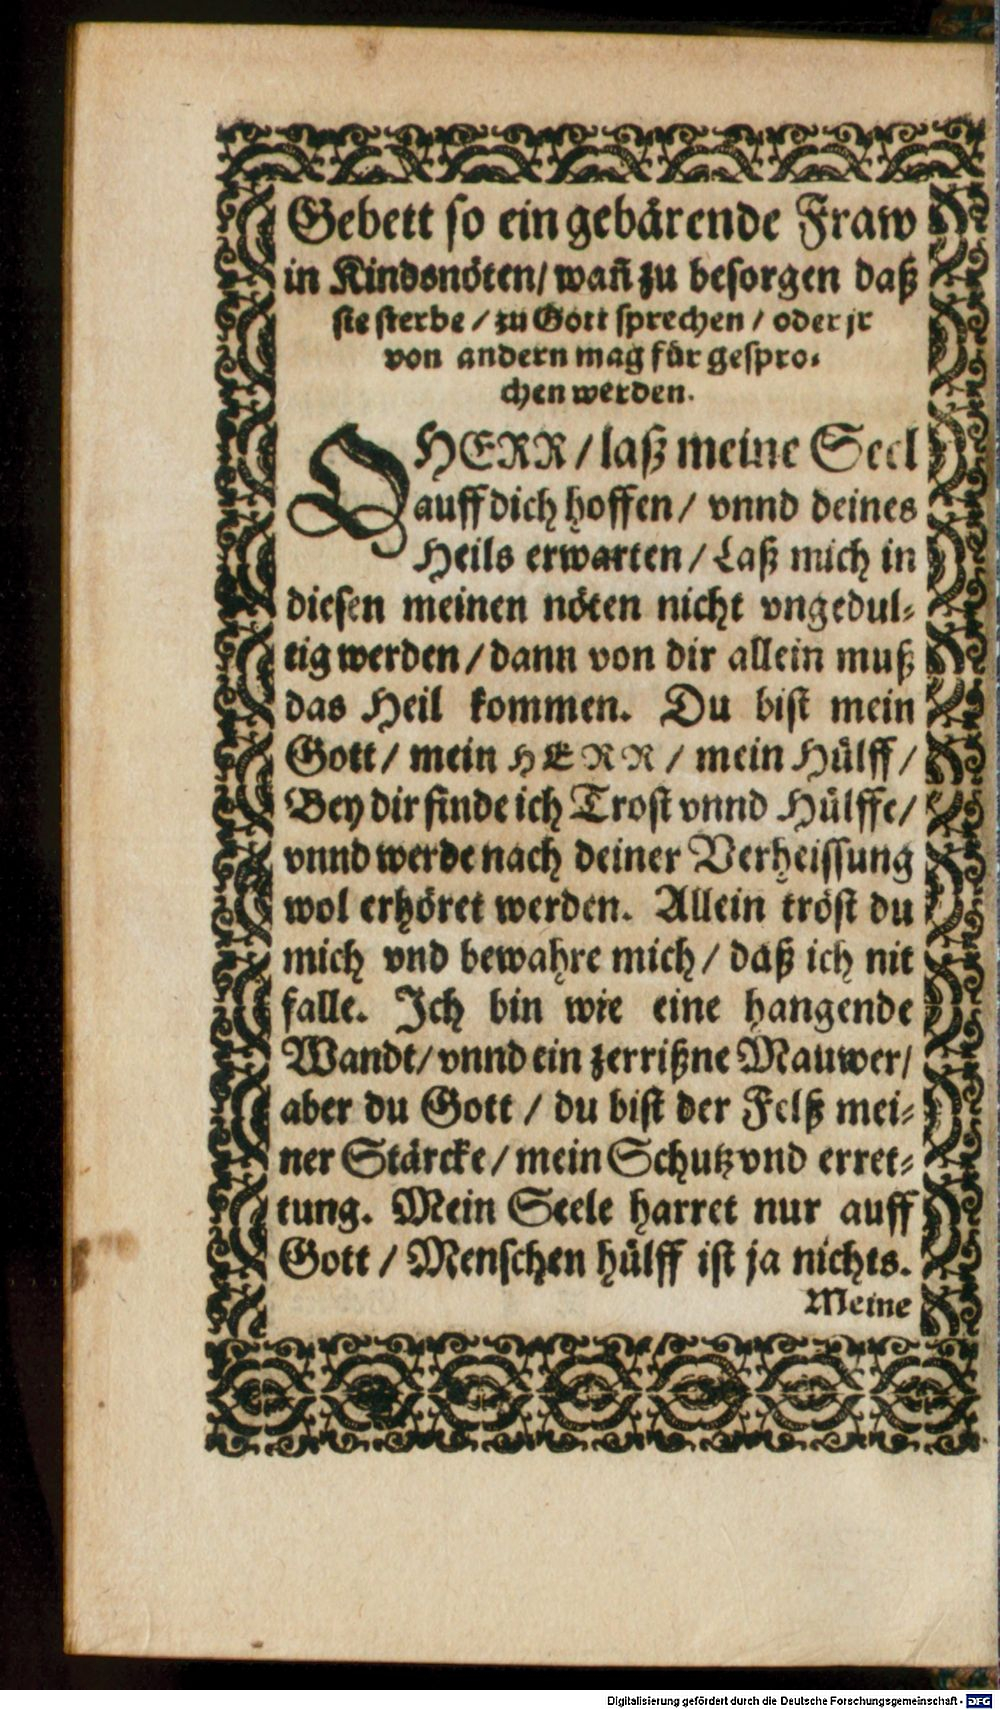 Gebett so ein gebärende Fraw
in Kindsnöten/ wañ zu besorgen daß
sie sterbe / zu Gott sprechen / oder jr
von andern mag für gespro-
chen werden.
O HERR / laß meine Seel
auff dich hoffen / vnnd deines
Heils erwarten / Laß mich in
diesen meinen nöten nicht vngedul-
tig werden / dann von dir allein muß
das Heil kommen. Du bist mein
Gott / mein HERR / mein Hülff /
Bey dir finde ich Trost vnnd Hülffe /
vnnd werde nach deiner Verheissung
wol erhöret werden. Allein tröst du
mich vnd bewahre mich / daß ich nit
falle. Ich bin wie eine hangende
Wandt / vnnd ein zerrißne Mauwer /
aber du Gott / du bist der Felß mei-
ner Stärcke / mein Schutz vnd erret-
tung. Mein Seele harret nur auff
Gott / Menschen hülff ist ja nichts.
Meine
Digitalisierung gefördert durch die Deutsche Forschungsgemeinschaft - DFG